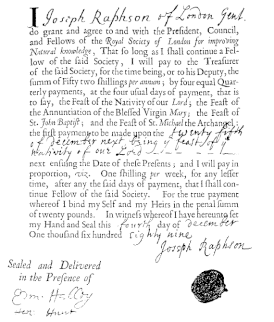 I Joseph Raphson of London Gent.
do grant and agree to and with the President, Council,
and Fellows of the Royal Society of London for improving
Natural knowledge, That so long as I shall continue a Fel-
low of the said Society, I will pay to the Treasurer
of the said Society, for the time being, or to his Deputy, the
summ of Fifty two shillings per annum; by four equal Quar-
terly payments, at the four usual days of payment, that is
to say, the Feast of the Nativity of our Lord; the Feast of
the Annunciation of the Blessed Virgin Mary; the Feast of
St. John Baptist; and the Feast of St. Michael the Archangel;
the first payment to be made upon the twenty fifth
of december next being ye feast of ye
Nativity of our Lord
next ensuing the Date of these Presents; and I will pay in
proportion, viz. One shilling per week, for any lesser
time, after any the said days of payment, that I shall con-
tinue Fellow of the said Society. For the true payment
whereof I bind my Self and my Heirs in the penal summ
of twenty pounds. In witness whereof I have hereunto set
my Hand and Seal this fourth day of december
One thousand six hundred eighty nine
Joseph Raphson
Sealed and Delivered
in the Presence of
Edm: Halley
Hunt